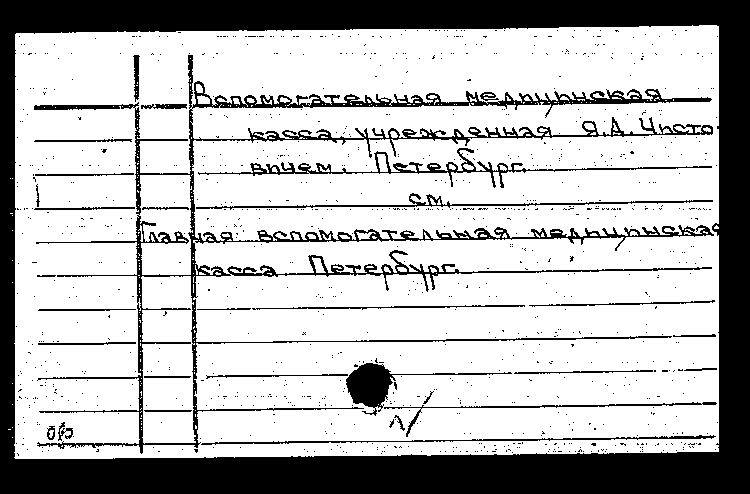 Вспомогательная медицинская
касса, учрежденная Я.А. Чисто-
вичем. Петербург.
см.
Главная вспомогательная медицинская
касса Петербург.